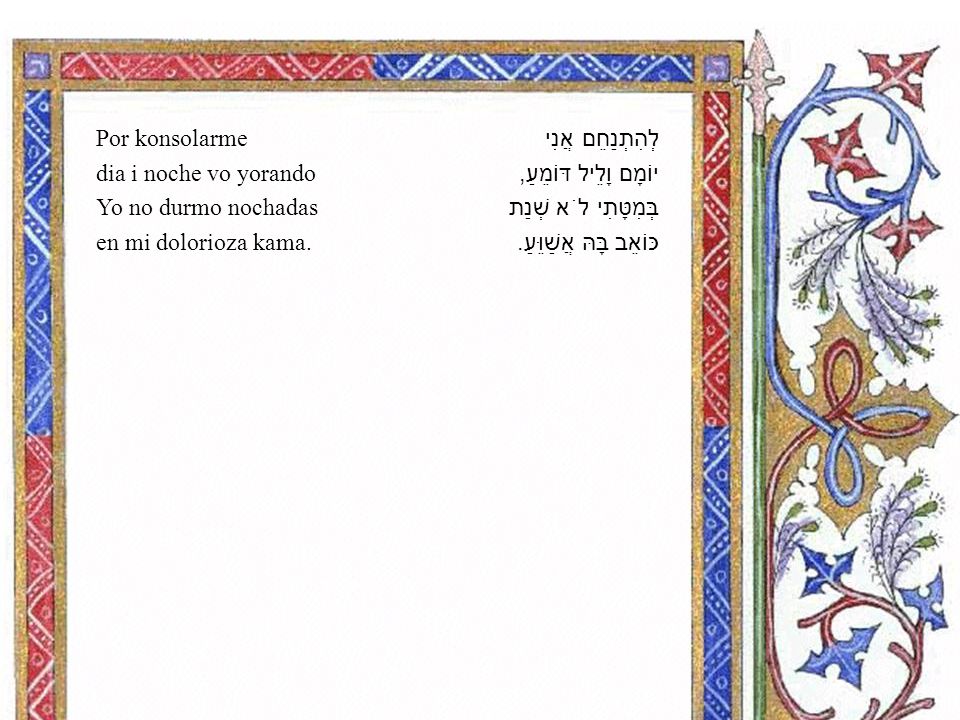 Por konsolarme
dia i noche vo yorando
Yo no durmo nochadas
en mi dolorioza kama.
לְהִתְנַחֵם אֲנִי
יוֹמָם וָלֵיל דּוֹמֵעַ,
בְּמִטָּתִי לֹא שְׁנַת
כּוֹאֵב בָּהּ אֲשַׁוֵּעַ.